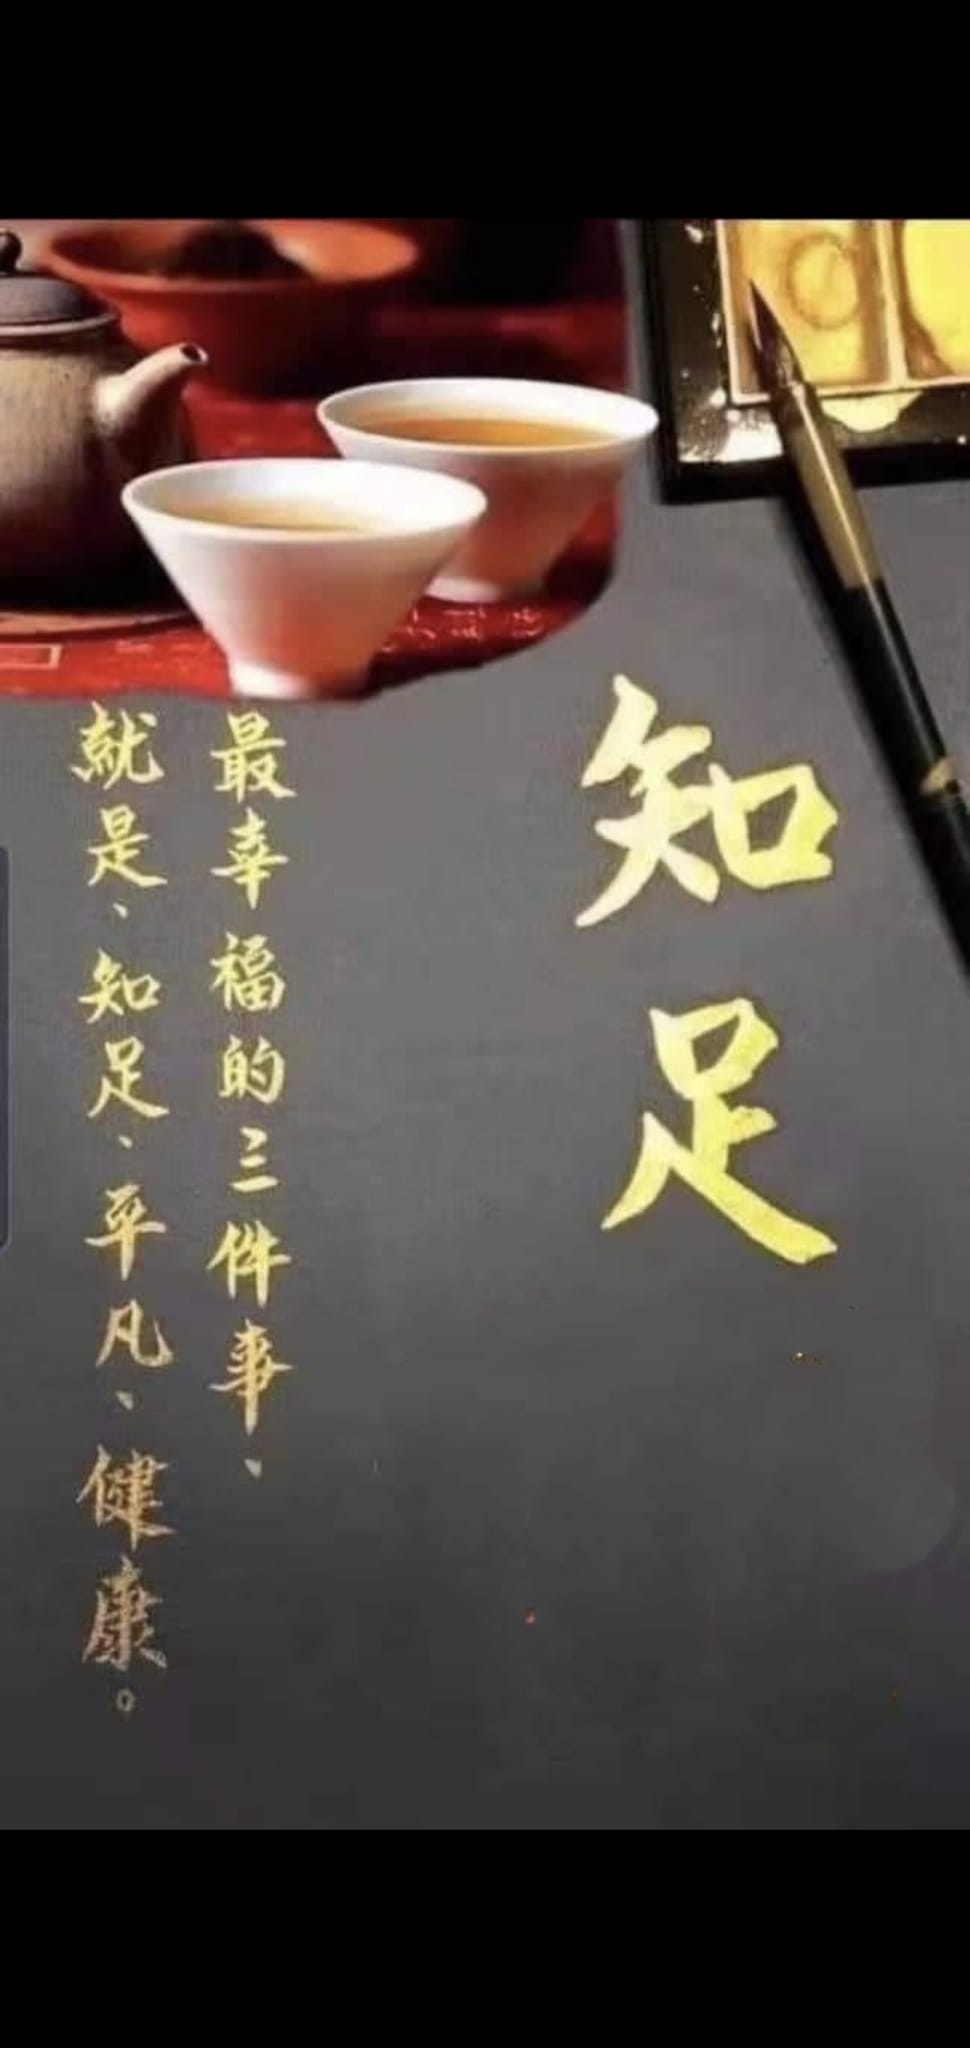 知足
最幸福的三件事、
就是、知足、平凡、健康。